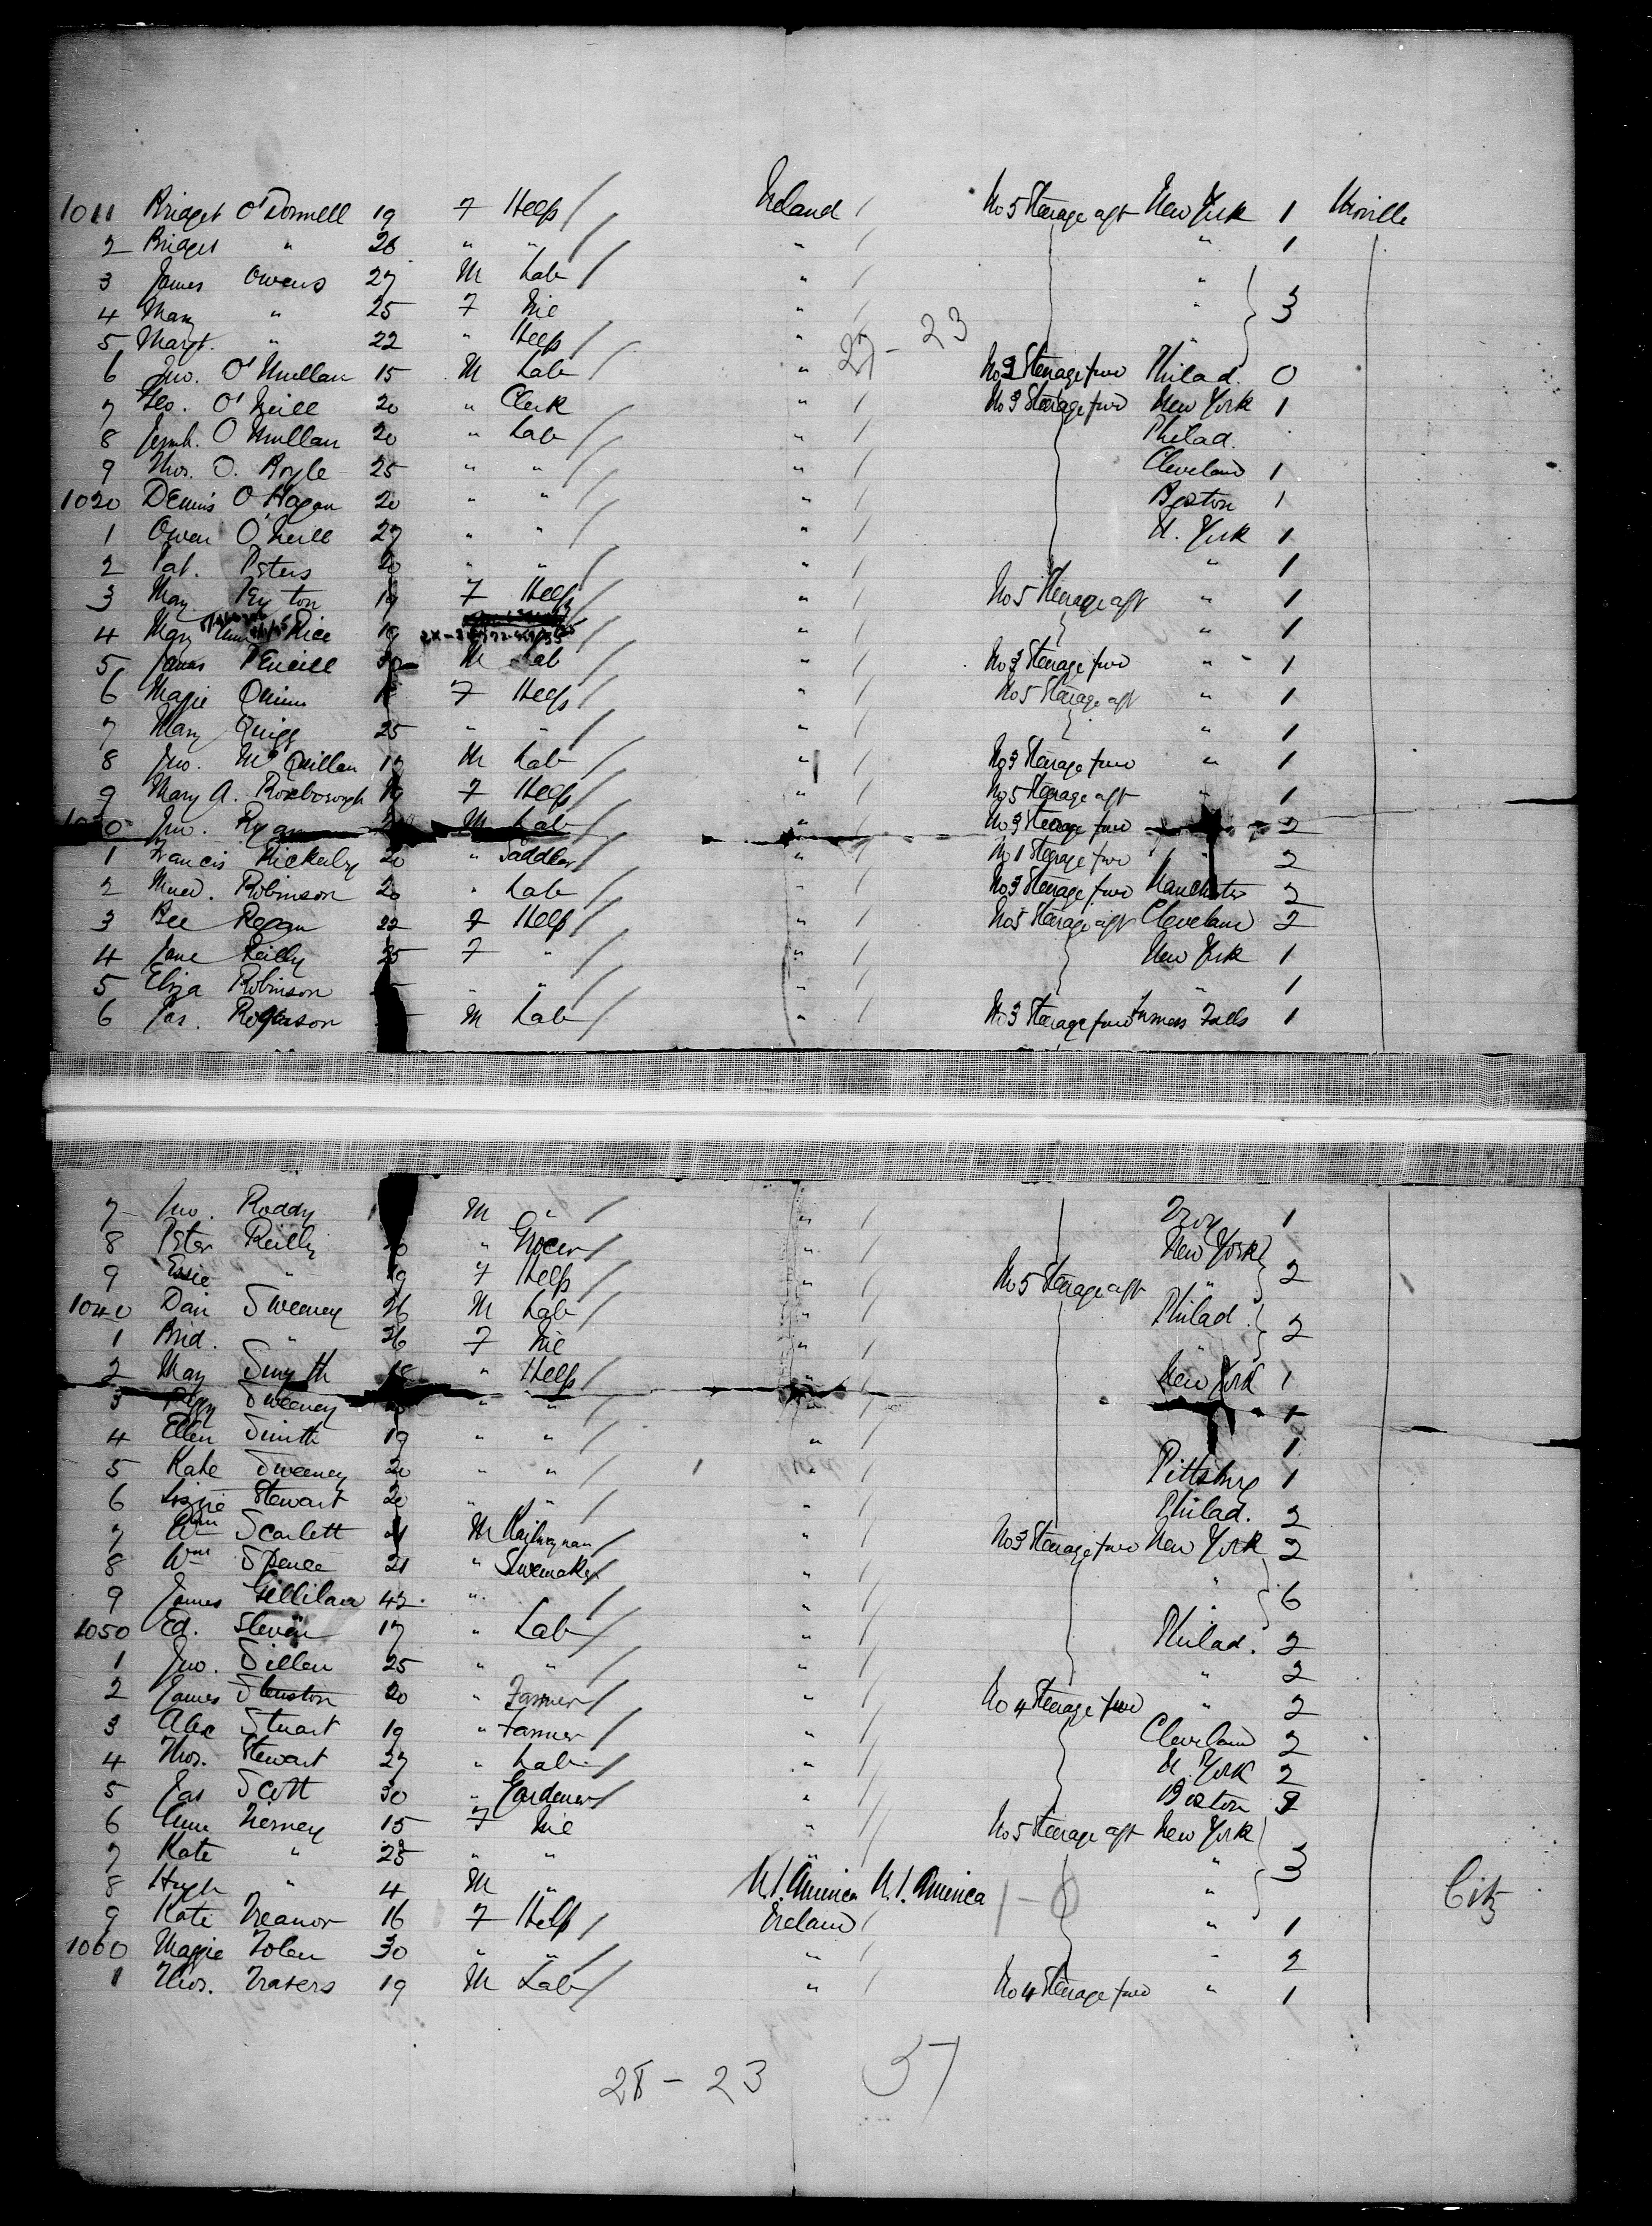 1011 Bridget O'Donnell 19 F Help / Ireland / No 5 Steerage aft New York 1 Moville
2 Bridget " 26 " " / " / " 1
3 James Owens 27 M Lab / " / "
4 Mary " 25 F Nie " / " 3
5 Margt. " 22 " Help / " / "
27 - 23
6 Jno. O'Mullan 15 M Lab / " / No 3 Steerage fwd Philad. 0
7 Geo. O'Neill 20 " Clerk " / No 3 Steerage fwd New York 1
8 O'Mullan 20 " Lab / " / Philad.
9 Thos. O. Boyle 25 " " / " / Cleveland 1
1020 Dennis O'Hagan 20 " " / " / Boston 1
1 Owen O'Neill 27 " " / " / N. York 1
2 Pat. Peters 20 " " / " / " 1
3 Mary Peyton 19 F Help / " / No 5 Steerage aft " 1
4 Mary Rice 19 " / " 1
5 James M Lab " / No 3 Steerage fwd " 1
6 Magie Quinn F Help / " / No 5 Steerage aft " 1
7 Mary Quigg 25 " " / " / " 1
8 Jno. McQuillan M Lab / " / No 3 Steerage fwd " 1
9 Mary A. Roxborough 19 F Help / " / No 5 Steerage aft " 1
0 Jno. Ryan M Lab / " / No 3 Steerage fwd 2
1 Francis 20 " Saddler / " / No 1 Steerage fwd 2
2 Robinson 20 " Lab / " / No 3 Steerage fwd Manchester 2
3 Bee Regan 22 F Help / " / No 5 Steerage aft Cleveland 2
4 Jane Reilly 25 F " / " / New York 1
5 Eliza Robinson " " / " / " 1
6 Jas. M Lab / " / No 3 Steerage fwd Falls 1
7 Jno. Roddy M " / " / Troy 1
8 Peter Reilly " Grocer / " / New York
9 Essie " 19 F Help / " / No 5 Steerage aft " 2
1040 Dan Sweeney 26 M Lab / " / Philad.
1 Brid. " 26 F Nie " / " 2
2 Mary Smyth 18 " Help / " / New York 1
3 Sweeney " " / " / 1
4 Ellen Smith 19 " " / " / 1
5 Kate Sweeney 20 " " / " / Pittsburg 1
6 Lizzie Stewart 20 " " / " / Philad. 2
7 Wm Scarlett 21 M Railwayman / " / No 3 Steerage fwd New York 2
8 Wm Spence 21 " Shoemaker / " / "
9 James Gillilan 42 " / " / " 6
1050 Ed. Slevin 17 " Lab / " / Philad. 2
1 Jno. Dillon 25 " " / " / " 2
2 James 20 " Farmer / " / No 4 Steerage fwd " 2
3 Alex Stuart 19 " Farmer / " / Cleveland 2
4 Thos. Stewart 27 " Lab / " / N. York 2
5 Jas Scott 30 " Gardener / " / Boston
6 Ann Tierney 15 F Nie " / No 5 Steerage aft New York
7 Kate " 25 " " " / " 3
8 Hugh " 4 M " N. America N. America 1 - 0 " Citz
9 Kate Treanor 16 F Help / Ireland / " 1
1060 Maggie Tolen 30 " " / " / " 2
1 Thos. Travers 19 M Lab / " / No 4 Steerage fwd " 1
28 - 23 37